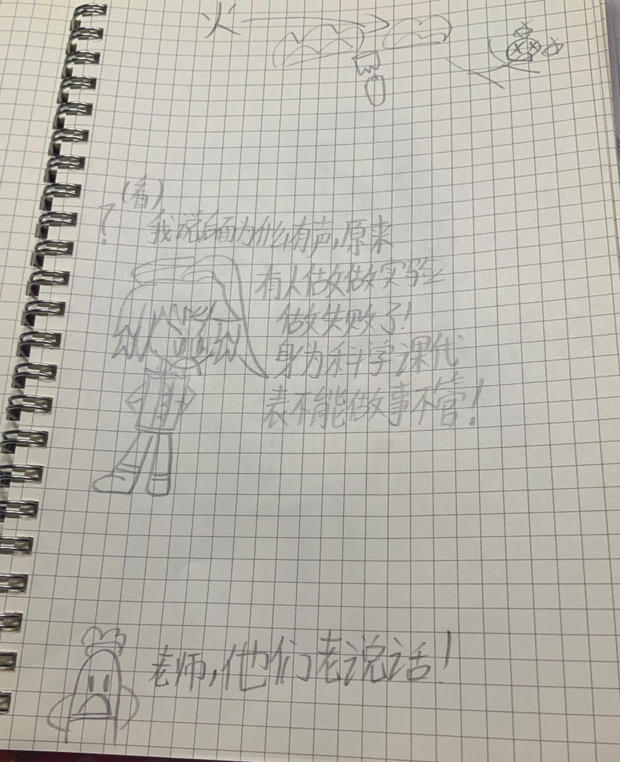 火
(看)
? 我说后面为什么有声,原来
有人做做实验
做失败了!
身为科学课代
表不能做事不管!
老师,他们老说话!